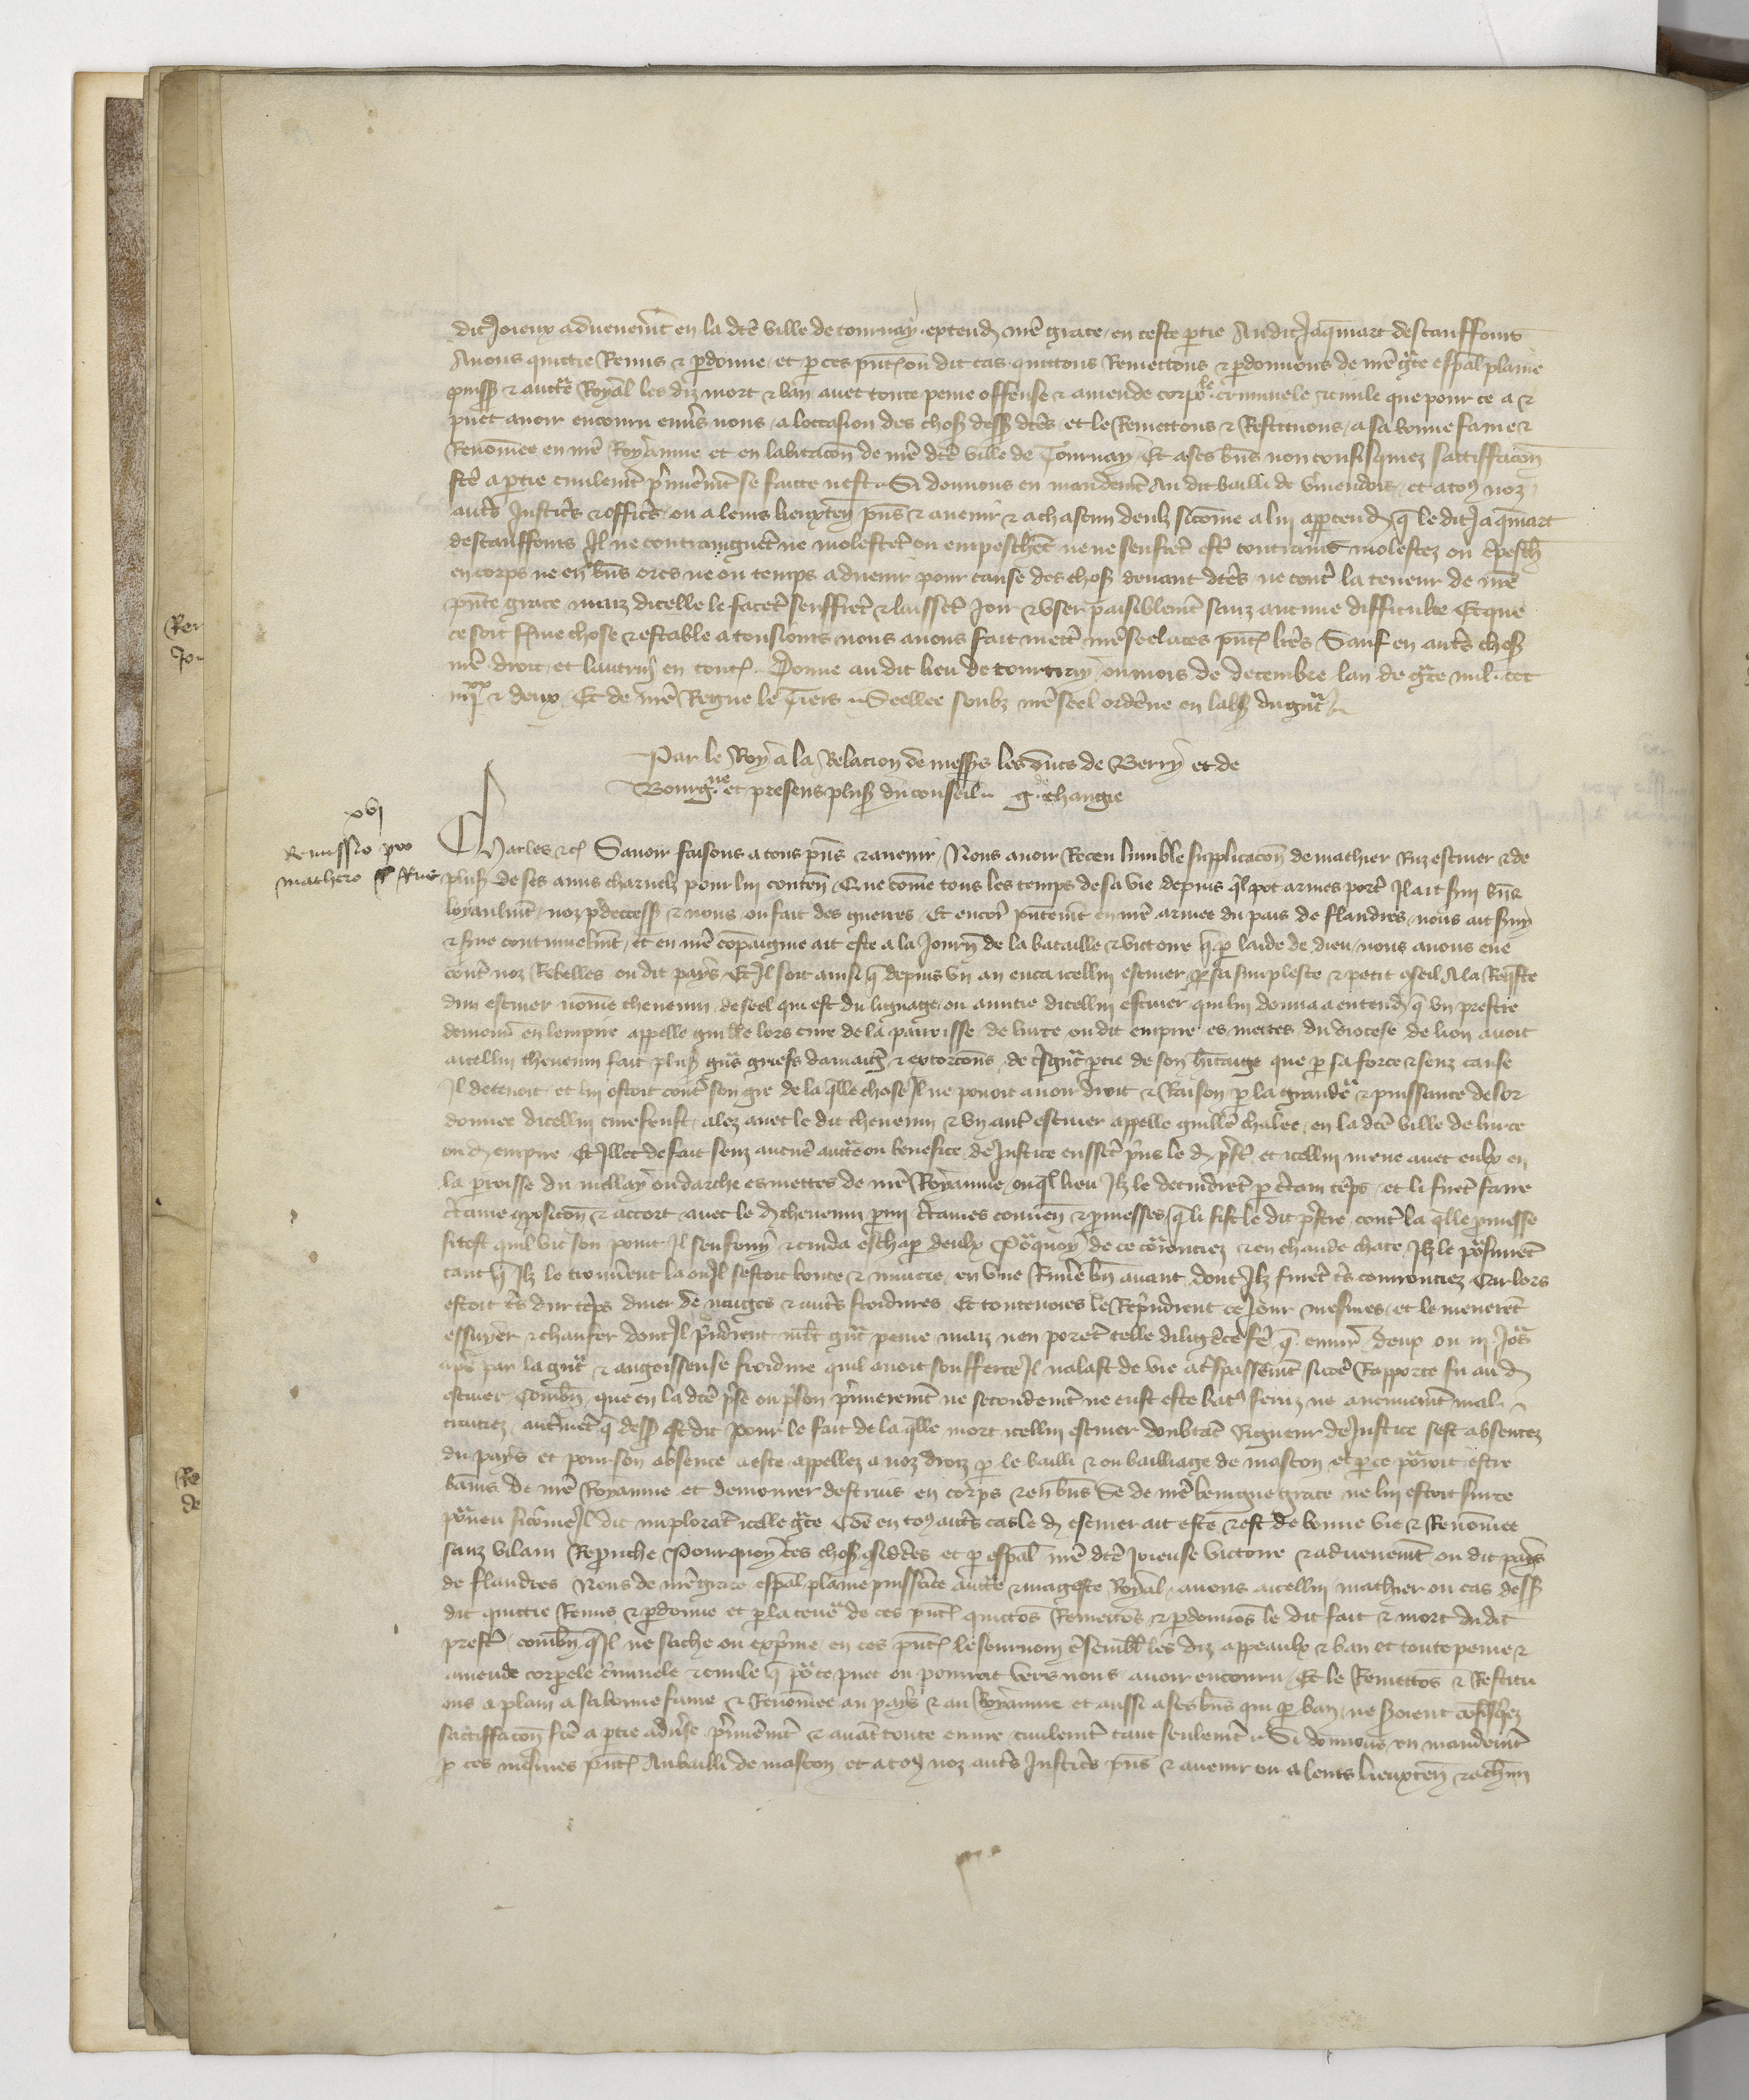 dit Joieux advenemt en la dce ville de tournay. extend. nre grace. en ceste ptie Au dit Jaqmart descauffours
Avons quittie Remis & pdonne. et p ces pntes ou dit cas. quittons Remettons & pdonnons de nre gce espal plaine
puiss & auctte Royal les diz mort & ban avec toute peine offense & amende corpole criminele & civile que pour ce a &
puet avoir encouru envs nous. a loccasion des choses dess dces. et le Remettons & Restituons. a sa bonne fame &
Renomee en nre Royaume et en labitacon de nre dce ville de Tournay Et a ses bns non confisquez sattiffacon
fce a ptie civilemt pmieremt se faitte nest. Si donnons en mandemt Au dit bailli de vmendois. et a tous noz
auts Justics & offics. ou a leurs lieuxten pns & avenir & a chascun deulz sicome a lui apptend q le dit Jaqmart
descauffours Il ne contraignet ne molestet ou empeschet ne ne seuffret est contrains molestez ou epesch
en corps ne en bns ores ne ou temps advenir pour cause des choses devant dces ne cont la teneur de nre
pnte grace maiz dicelle le facet seuffret & laisset Joir & user paisiblemt sanz aucune difficulte Et que
ce soit ferme chose & estable a tousiours nous avons fait mett nre seel a ces pntes lres Sauf en auts choses
nre droit. et lautruy en toutes. Donne au dit lieu de tournay ou mois de decembre lan de gce mil. ccc
iiijxx & deux. Et de nre Regne le Tiers. Seellee soubz nre seel ordene en labs du gnt
Par le Roy a la Relacion de messrs les ducs de Berry et de
Bourgne et presens pluss du conseil. g. de changie
xvj
Remissio pro
mathero Rue
Charles &c Savoir faisons a tous pns & avenir. Nous avoir Receu lumble supplicacon de mathier Ruz escuier & de
pluss de ses amis charnelz pour lui conten Que come tous les temps de sa vie depuis ql pot armes port Il ait suy bn &
loyaulmt. noz pdecess & nous. ou fait des guerres. Et encor pntemt en nre armee du pais de flandres. nous ait suy
& svi continuelmt. et en nre copaignie ait este a la Journ de la bataille & victoire q p laide de dieu. nous avons eue
cont noz Rebelles ou dit pays Et Il soit ainsi q depuis un an enca icellui escuier p sa simplesce & petit conseil A la Reqste
dun escuier nome thevenin de seel qui est du lignage ou amitie dicellui escuier qui lui donna a entend q un prestre
demour en lempire appelle guille lors cure de la parroisse de lurce ou dit empire es mettes du diocese de lion avoit
a icellui thevenin fait pluss gns griefs damaiges & extorcons. de gnt ptie de son hitaige que p sa force & senz cause
Il detenoit. et lui ostoit cont son gre de la qlle chose Il ne povoit avoir droit & Raison p la grandr & puissance desor
donnee dicellui cure feust. alez avec le dit thevenin & un aut escuier appelle guille chalee. en la dce ville de lurce
ou d empire Et Illec de fait senz aucune auctte ou benefice de Justice eusset pns le d pst et icellui mene avec eulx en
la proisse du mellay ou darche es mettes de nre Royaume. ouql lieu Ilz le detindret p ctain teps. et li firet faire
ctaine composicon & accort avec le d thevenin pmi ctaines conven & pmesses q li fist le dit pstre cont la qlle pmesse
sitost quil vit son point Il senfouy & cuida eschap deulx Pourquoy de ce courouciez & en chaude chace Ilz le poursuiret
tant q Ilz le trouvent la ou Il sestoit boute & mucie. en une Rivie bn avant dont Ilz furet ts courrouciez Car lors
estoit ts dur teps diver de neiges & auts froidures Et toutevoies le Reprindrent ce Jour mesmes. et le meneret
essuyer & chaufer dont Il prindrent mlt gnt peine maiz nen poret telle diligece fe q. environ deux ou iij Jours
aps par la gnt & angoisseuse froidure quil avoit soufferte Il nalast de vie a tspassemt sicoe Rapporte fu au d
escuier Combn que en la dce pse ou pson pmieremt ne secondemt ne eust este batu feruz ne aucunemt mal
tcuriez. autmet q dess est dit Pour le fait de la qlle mort icellui escuier doubtat Rigueur de Justice sest absentez
du pays et pour son absence a este appellez a noz droiz p le bailli & ou bailliage de mascon et p ce pourroit estre
bannis de nre Royaume et demourer destruis en corps & en bns se de nre benigne grace ne lui estoit surce
pourveu sicome Il dit implorat icelle gce Coe en tous auts cas le d escuier ait este & est de bonne vie & Renomee
sanz vilain Reprouche Pourquoy ces choses considees et p espal nre dce Joieuse victoire & advenemt ou dit pays
de flandres Nous de nre grace espal plaine puissance auctte & mageste Royal. avons a icellui mathier ou cas dess
dit quittie Remis & pdonne et p la teneur de ces pntes quittos Remettos & pdonnos le dit fait & mort du dit
prest. combn q Il ne sache ou exprime en ces pntes le seurnom ensembl les diz appeaulx & ban et toute peine &
amende corpele cminele & civile q pour ce puet ou pourroit vers nous avoir encouru. Et le Remettos & Restitu
ons a plain a sa bonne fame & Renomee au pays & au Royaume et aussi a ses bns qui p ban. ne seroient cofisqez
sattiffacon fce a ptie advse pmieremt & avat toute euvre civilemt tant seulemt. Si donnons en mandemt
p ces mesmes pntes Au bailli de mascon et a tous noz auts Justics pns & avenir ou a leurs lieuxten & a chun